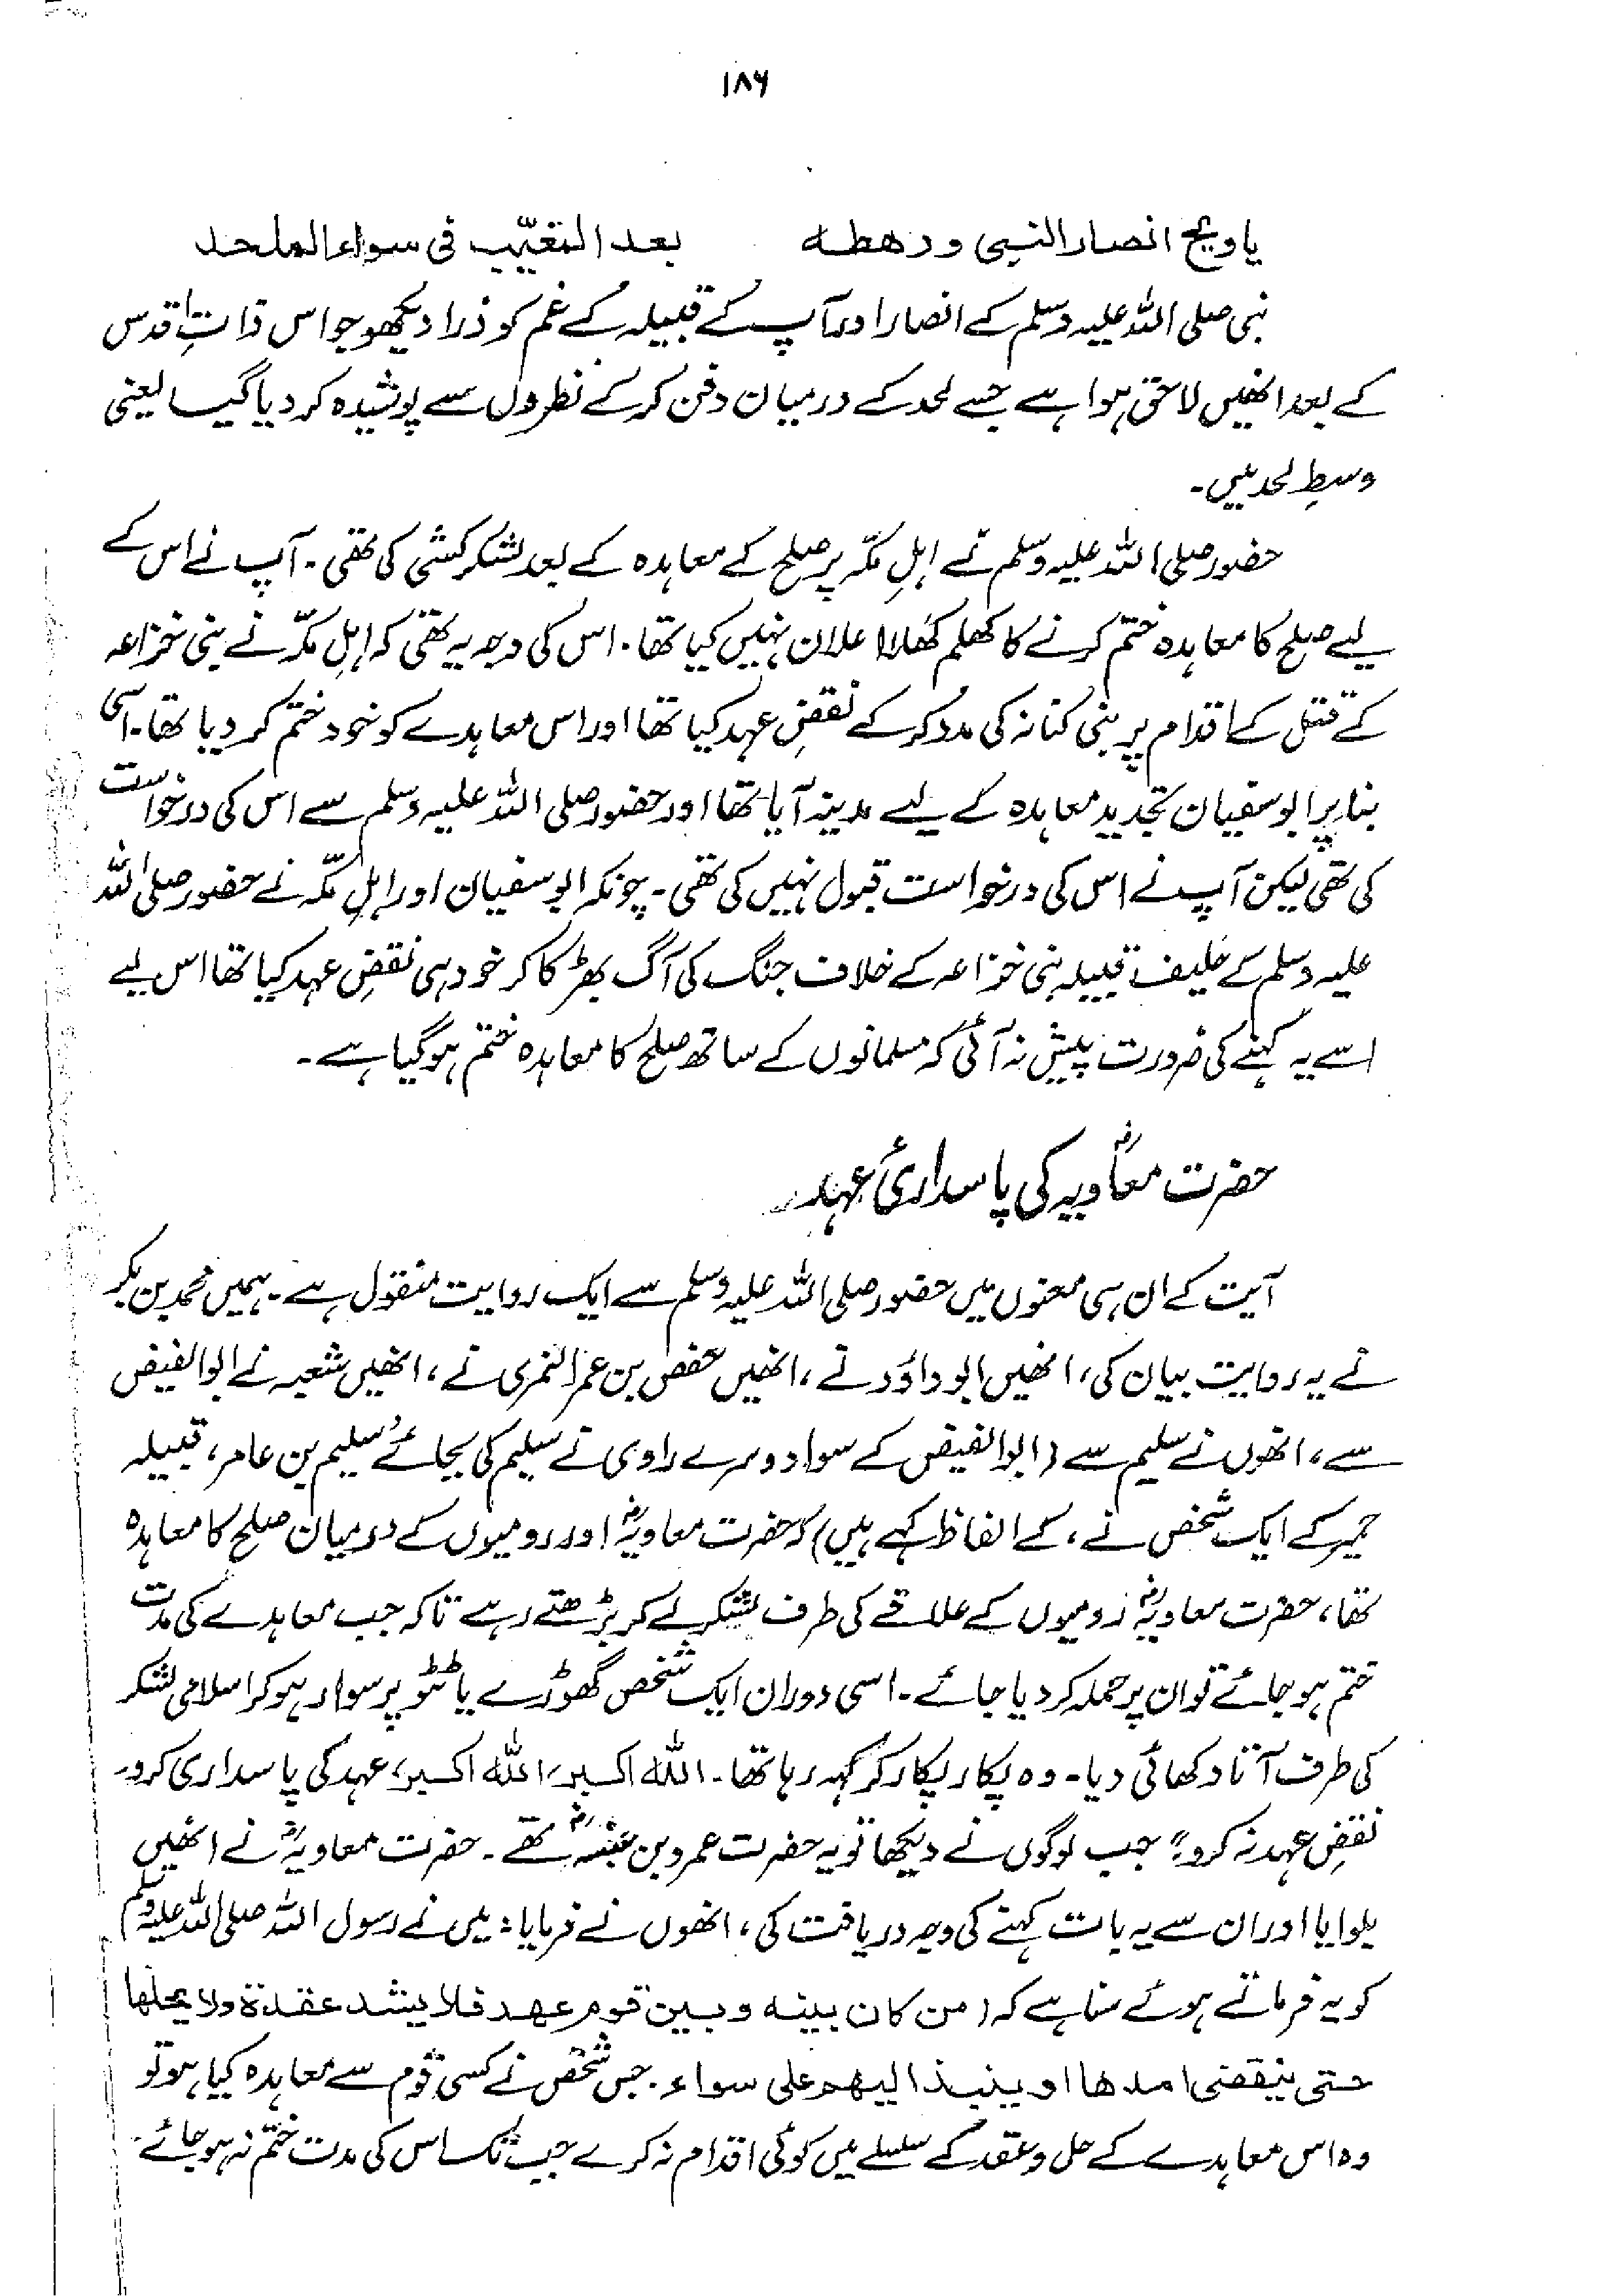 ۱۸۶
یا ویح انصار النبی ورھطہ بعد المغیّب فی سواء الملحد
نبی صلی اللہ علیہ وسلم کے انصار اور آپ کے قبیلہ کے غم کو ذرا دیکھو جو اس ذاتِ اقدس
کے بعد انھیں لاحق ہوا ہے جسے لحد کے درمیان دفن کرکے نظروں سے پوشیدہ کر دیا گیا یعنی
وسطِ لحد میں۔
حضور صلی اللہ علیہ وسلم نے اہلِ مکّہ پر صلح کے معاہدہ کے بعد لشکر کشی کی تھی۔ آپ نے اس کے
لیے صلح کا معاہدہ ختم کرنے کا کھلم کھلا اعلان نہیں کیا تھا۔ اس کی وجہ یہ تھی کہ اہلِ مکّہ نے بنی خزاعہ
کے قتل کے اقدام پر بنی کنانہ کی مدد کرکے نقضِ عہد کیا تھا اور اس معاہدے کو خود ختم کر دیا تھا۔ اسی
بنا پر ابوسفیان تجدید معاہدہ کے لیے مدینہ آیا تھا اور حضور صلی اللہ علیہ وسلم سے اس کی درخواست
کی تھی لیکن آپ نے اس کی درخواست قبول نہیں کی تھی۔ چونکہ ابوسفیان اور اہلِ مکّہ نے حضور صلی اللہ
علیہ وسلم کے حلیف قبیلہ بنی خزاعہ کے خلاف جنگ کی آگ بھڑکا کر خود ہی نقضِ عہد کیا تھا اس لیے
اسے یہ کہنے کی ضرورت پیش نہ آئی کہ مسلمانوں کے ساتھ صلح کا معاہدہ ختم ہو گیا ہے۔
حضرت معاویہؓ کی پاسداریٔ عہد
آیت کے ان ہی معنوں میں حضور صلی اللہ علیہ وسلم سے ایک روایت منقول ہے۔ ہمیں محمد بن بکر
نے یہ روایت بیان کی، انھیں ابو داؤد نے، انھیں حفص بن عمر النمری نے، انھیں شعبہ نے ابوالفیض
سے، انھوں نے سلیم سے (ابوالفیض کے سوا دوسرے راوی نے سلیم کی بجائے سُلیم بن عامر، قبیلہ
حمیر کے ایک شخص نے، کے الفاظ کہے ہیں) کہ حضرت معاویہؓ اور رومیوں کے درمیان صلح کا معاہدہ
تھا، حضرت معاویہؓ رومیوں کے علاقے کی طرف لشکر لے کر بڑھتے رہے تاکہ جب معاہدے کی مدت
ختم ہو جائے تو ان پر حملہ کر دیا جائے۔ اسی دوران ایک شخص گھوڑے یا ٹٹو پر سوار ہو کر اسلامی لشکر
کی طرف آتا دکھائی دیا۔ وہ پکار پکار کر کہہ رہا تھا۔ اللہ اکبر، اللہ اکبر، عہد کی پاسداری کرو۔
نقضِ عہد نہ کرو" جب لوگوں نے دیکھا تو یہ حضرت عمرو بن عبسہؓ تھے۔ حضرت معاویہؓ نے انھیں
بلوایا اور ان سے یہ بات کہنے کی وجہ دریافت کی، انھوں نے فرمایا: میں نے رسول اللہ صلی اللہ علیہ وسلم
کو یہ فرماتے ہوئے سنا ہے کہ (من کان بینہ و بین قوم عھد فلا یشد عقدۃ ولا یحلھا
حتی ینقضی امدھا او ینبذ الیھم علی سواء۔ جس شخص نے کسی قوم سے معاہدہ کیا ہو تو
وہ اس معاہدے کے حل و عقد کے سلسلے میں کوئی اقدام نہ کرے جب تک اس کی مدت ختم نہ ہو جائے۔